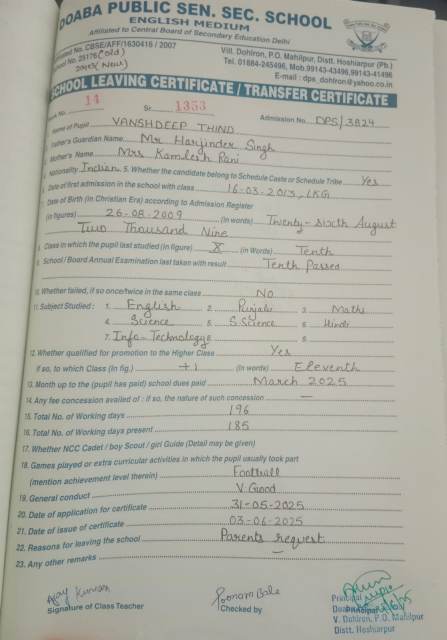 DOABA PUBLIC SEN. SEC. SCHOOL
ENGLISH MEDIUM
Affiliated to Central Board of Secondary Education Delhi
No. CBSE/AFF/1630416 / 2007
Vill. Dohlron, P.O. Mahilpur, Distt. Hoshiarpur (Pb.)
No. 25176 (Old)
Tel. 01884-245496, Mob.99143-43496,99143-41496
(New)
E-mail : dps_dohlron@yahoo.co.in
SCHOOL LEAVING CERTIFICATE / TRANSFER CERTIFICATE
No. 14 Sr. 1353 Admission No. DPS/3824
Name of Pupil VANSHDEEP THIND
Father's Guardian Name Mr Harjinder Singh
Mother's Name Mrs Kamlesh Rani
Nationality Indian 5. Whether the candidate belong to Schedule Caste or Schedule Tribe Yes
Date of first admission in the school with class 16-03-2013, LKG
Date of Birth (in Christian Era) according to Admission Register
(in figures) 26-08-2009 (in words) Twenty-Sixth August
Two Thousand Nine
Class in which the pupil last studied (in figure) X (in Words) Tenth
School / Board Annual Examination last taken with result Tenth Passed
10. Whether failed, if so once/twice in the same class No
11. Subject Studied : 1. English 2. Punjabi 3. Maths
4. Science 5. S.Science 6. Hindi
7. Info-Technology 8. 9.
12. Whether qualified for promotion to the Higher Class Yes
if so, to which Class (in fig.) +1 (in words) Eleventh
13. Month up to the (pupil has paid) school dues paid March 2025
14. Any fee concession availed of : if so, the nature of such concession —
15. Total No. of Working days 196
16. Total No. of Working days present 185
17. Whether NCC Cadet / boy Scout / girl Guide (Detail may be given)
18. Games played or extra curricular activities in which the pupil usually took part
(mention achievement level therein) Football
19. General conduct V. Good
20. Date of application for certificate 31-05-2025
21. Date of issue of certificate 03-06-2025
22. Reasons for leaving the school Parents request
23. Any other remarks —
Ajay Kumar
Signature of Class Teacher
Poonam Bala
Checked by
Principal
V. Dohlron, P.O. Mahilpur
Distt. Hoshiarpur